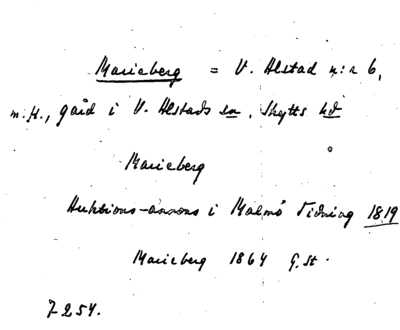 Marieberg = V. Alstad n:r 6,
m.fl., gård i V. Alstads sn, Skytts hd
Marieberg
Auktions-annons i Malmö Tidning 1819
Marieberg 1864 G.St.
7254.